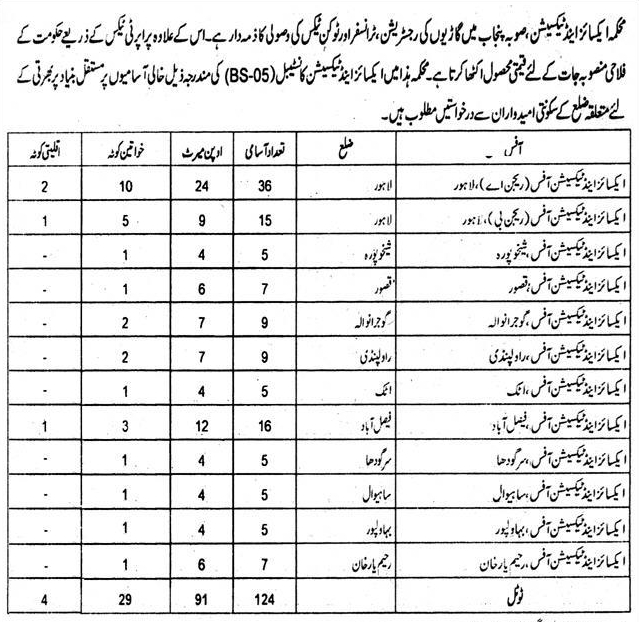 محکمہ ایکسائز اینڈ ٹیکسیشن، صوبہ پنجاب میں گاڑیوں کی رجسٹریشن، ٹرانسفر اور ٹوکن ٹیکس کی وصولی کا ذمہ دار ہے۔ اس کے علاوہ پراپرٹی ٹیکس کے ذریعے حکومت کے
فلاحی منصوبہ جات کے لئے قیمتی محصول اکٹھا کرتا ہے۔ محکمہ ہذا میں ایکسائز اینڈ ٹیکسیشن کانسٹیبل (BS-05) کی مندرجہ ذیل خالی آسامیوں پر مستقل بنیاد پر بھرتی کے
لئے متعلقہ ضلع کے سکونتی امیدواران سے درخواستیں مطلوب ہیں۔
آفس ضلع تعداد آسامی اوپن میرٹ خواتین کوٹہ اقلیتی کوٹہ
ایکسائز اینڈ ٹیکسیشن آفس (ریجن اے)، لاہور لاہور 36 24 10 2
ایکسائز اینڈ ٹیکسیشن آفس (ریجن بی)، لاہور لاہور 15 9 5 1
ایکسائز اینڈ ٹیکسیشن آفس، شیخوپورہ شیخوپورہ 5 4 1 -
ایکسائز اینڈ ٹیکسیشن آفس، قصور قصور 7 6 1 -
ایکسائز اینڈ ٹیکسیشن آفس، گوجرانوالہ گوجرانوالہ 9 7 2 -
ایکسائز اینڈ ٹیکسیشن آفس، راولپنڈی راولپنڈی 9 7 2 -
ایکسائز اینڈ ٹیکسیشن آفس، اٹک اٹک 5 4 1 -
ایکسائز اینڈ ٹیکسیشن آفس، فیصل آباد فیصل آباد 16 12 3 1
ایکسائز اینڈ ٹیکسیشن آفس، سرگودھا سرگودھا 5 4 1 -
ایکسائز اینڈ ٹیکسیشن آفس، ساہیوال ساہیوال 5 4 1 -
ایکسائز اینڈ ٹیکسیشن آفس، بہاولپور بہاولپور 5 4 1 -
ایکسائز اینڈ ٹیکسیشن آفس، رحیم یار خان رحیم یار خان 7 6 1 -
ٹوٹل 124 91 29 4